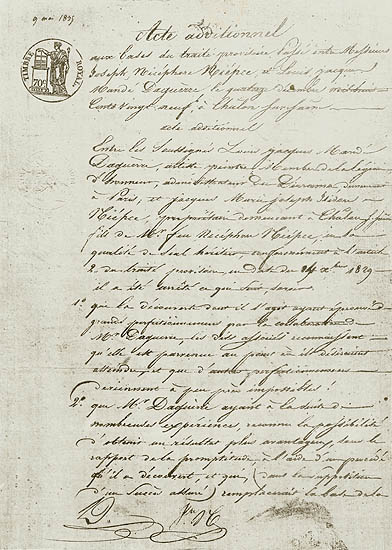 9 mai 1835
TIMBRE ROYAL
70
Acte additionnel
aux bases du traité provisoire passé entre Messieurs
Joseph Nicéphore Niépce et Louis Jacques
Mandé Daguerre le quatorze décembre mil huit
cent vingt neuf, à Chalon sur Saône
acte additionnel
Entre les Soussignés Louis Jacques Mandé
Daguerre, artiste peintre, Membre de la Légion
d'honneur, administrateur du Diorama demeurant
à Paris, et Jacques Marie Joseph Isidore
Niépce, propriétaire demeurant à Chalon
fils de Mr feu Nicéphore Niépce, en sa
qualité de seul héritier conformément à l'article
2. du traité provisoire en date du 14 Xbre 1829
il a été arrêté ce qui suit, savoir
1° que la découverte dont il s'agit ayant éprouvé
grands perfectionnemens par la collaboration de
Mr Daguerre, les dits associés reconnaissent
qu'elle est parvenue au point où ils désiraient
atteindre, et que d'autres perfectionnemens
deviennent à peu près impossibles
2° que Mr Daguerre ayant à la suite de
nombreuses expériences, reconnu la possibilité
d'obtenir un résultat plus avantageux, sous le
rapport de la promptitude à l'aide d'un procédé
qu'il a découvert, et que, (dans la supposition
d'un succès assuré) remplacerait la base de la
D.